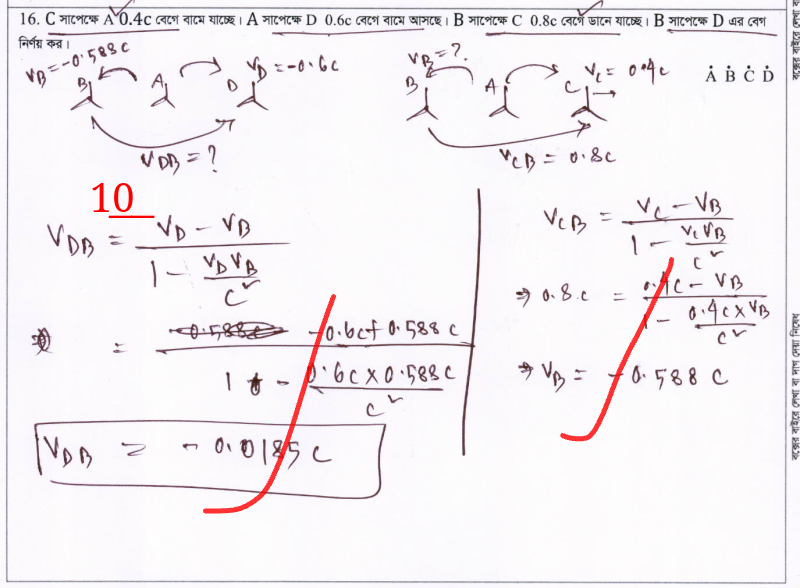 16. C সাপেক্ষে A 0.4c বেগে বামে যাচ্ছে। A সাপেক্ষে D 0.6c বেগে বামে আসছে। B সাপেক্ষে C 0.8c বেগে ডানে যাচ্ছে। B সাপেক্ষে D এর বেগ
নির্ণয় কর।
V_B = -0.588c
B A D V_D = -0.6c
V_DB = ?
V_B = ?
B A C V_C = 0.4c
V_CB = 0.8c
A B C D
10
V_DB = (V_D - V_B) / (1 - V_D V_B / c²)
= (-0.6c + 0.588c) / (1 - 0.6c × 0.588c / c²)
V_DB = -0.0185c
V_CB = (V_C - V_B) / (1 - V_C V_B / c²)
⇒ 0.8c = (0.4c - V_B) / (1 - 0.4c × V_B / c²)
⇒ V_B = -0.588 c
বক্সের বাইরে লেখা বা দাগ দেয়া নিষেধ